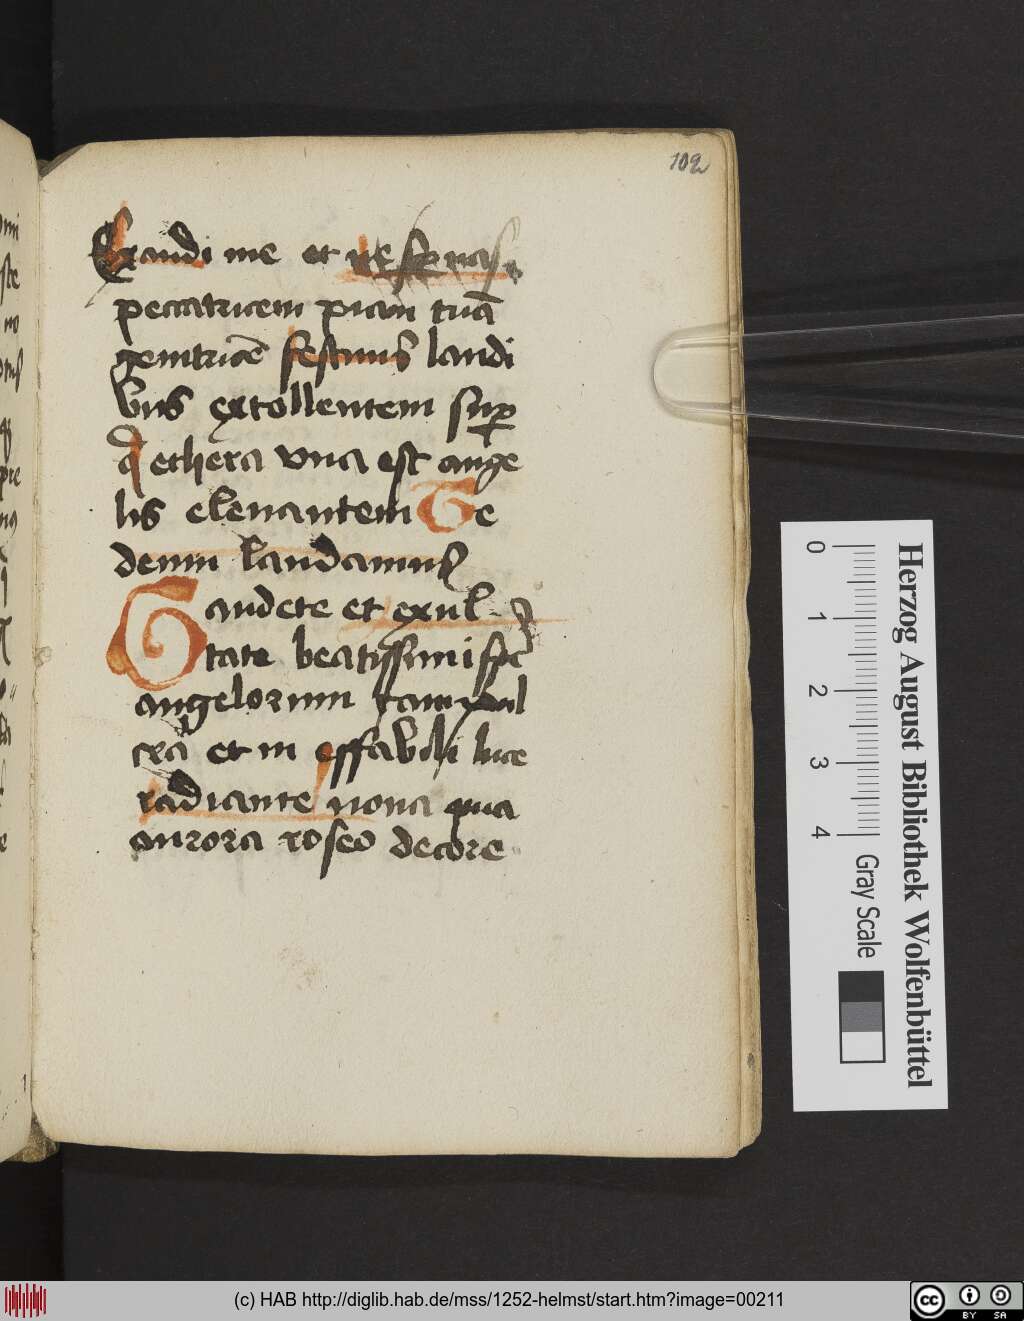 102
Exaudi me et ne spnas
peccatricem piam tuā
genitricē festinis laudi
bus extollentem sup
q̄ ethera vna est ange
lis eleuantem Te
deum laudamus
Gaudete et exul
tate beatissimi spc
angelorum tam pul
cra et in effabili luce
radiante nona qua
aurora roseo decore
Herzog August Bibliothek Wolfenbüttel
0 1 2 3 4
Gray Scale
(c) HAB http://diglib.hab.de/mss/1252-helmst/start.htm?image=00211
cc BY SA